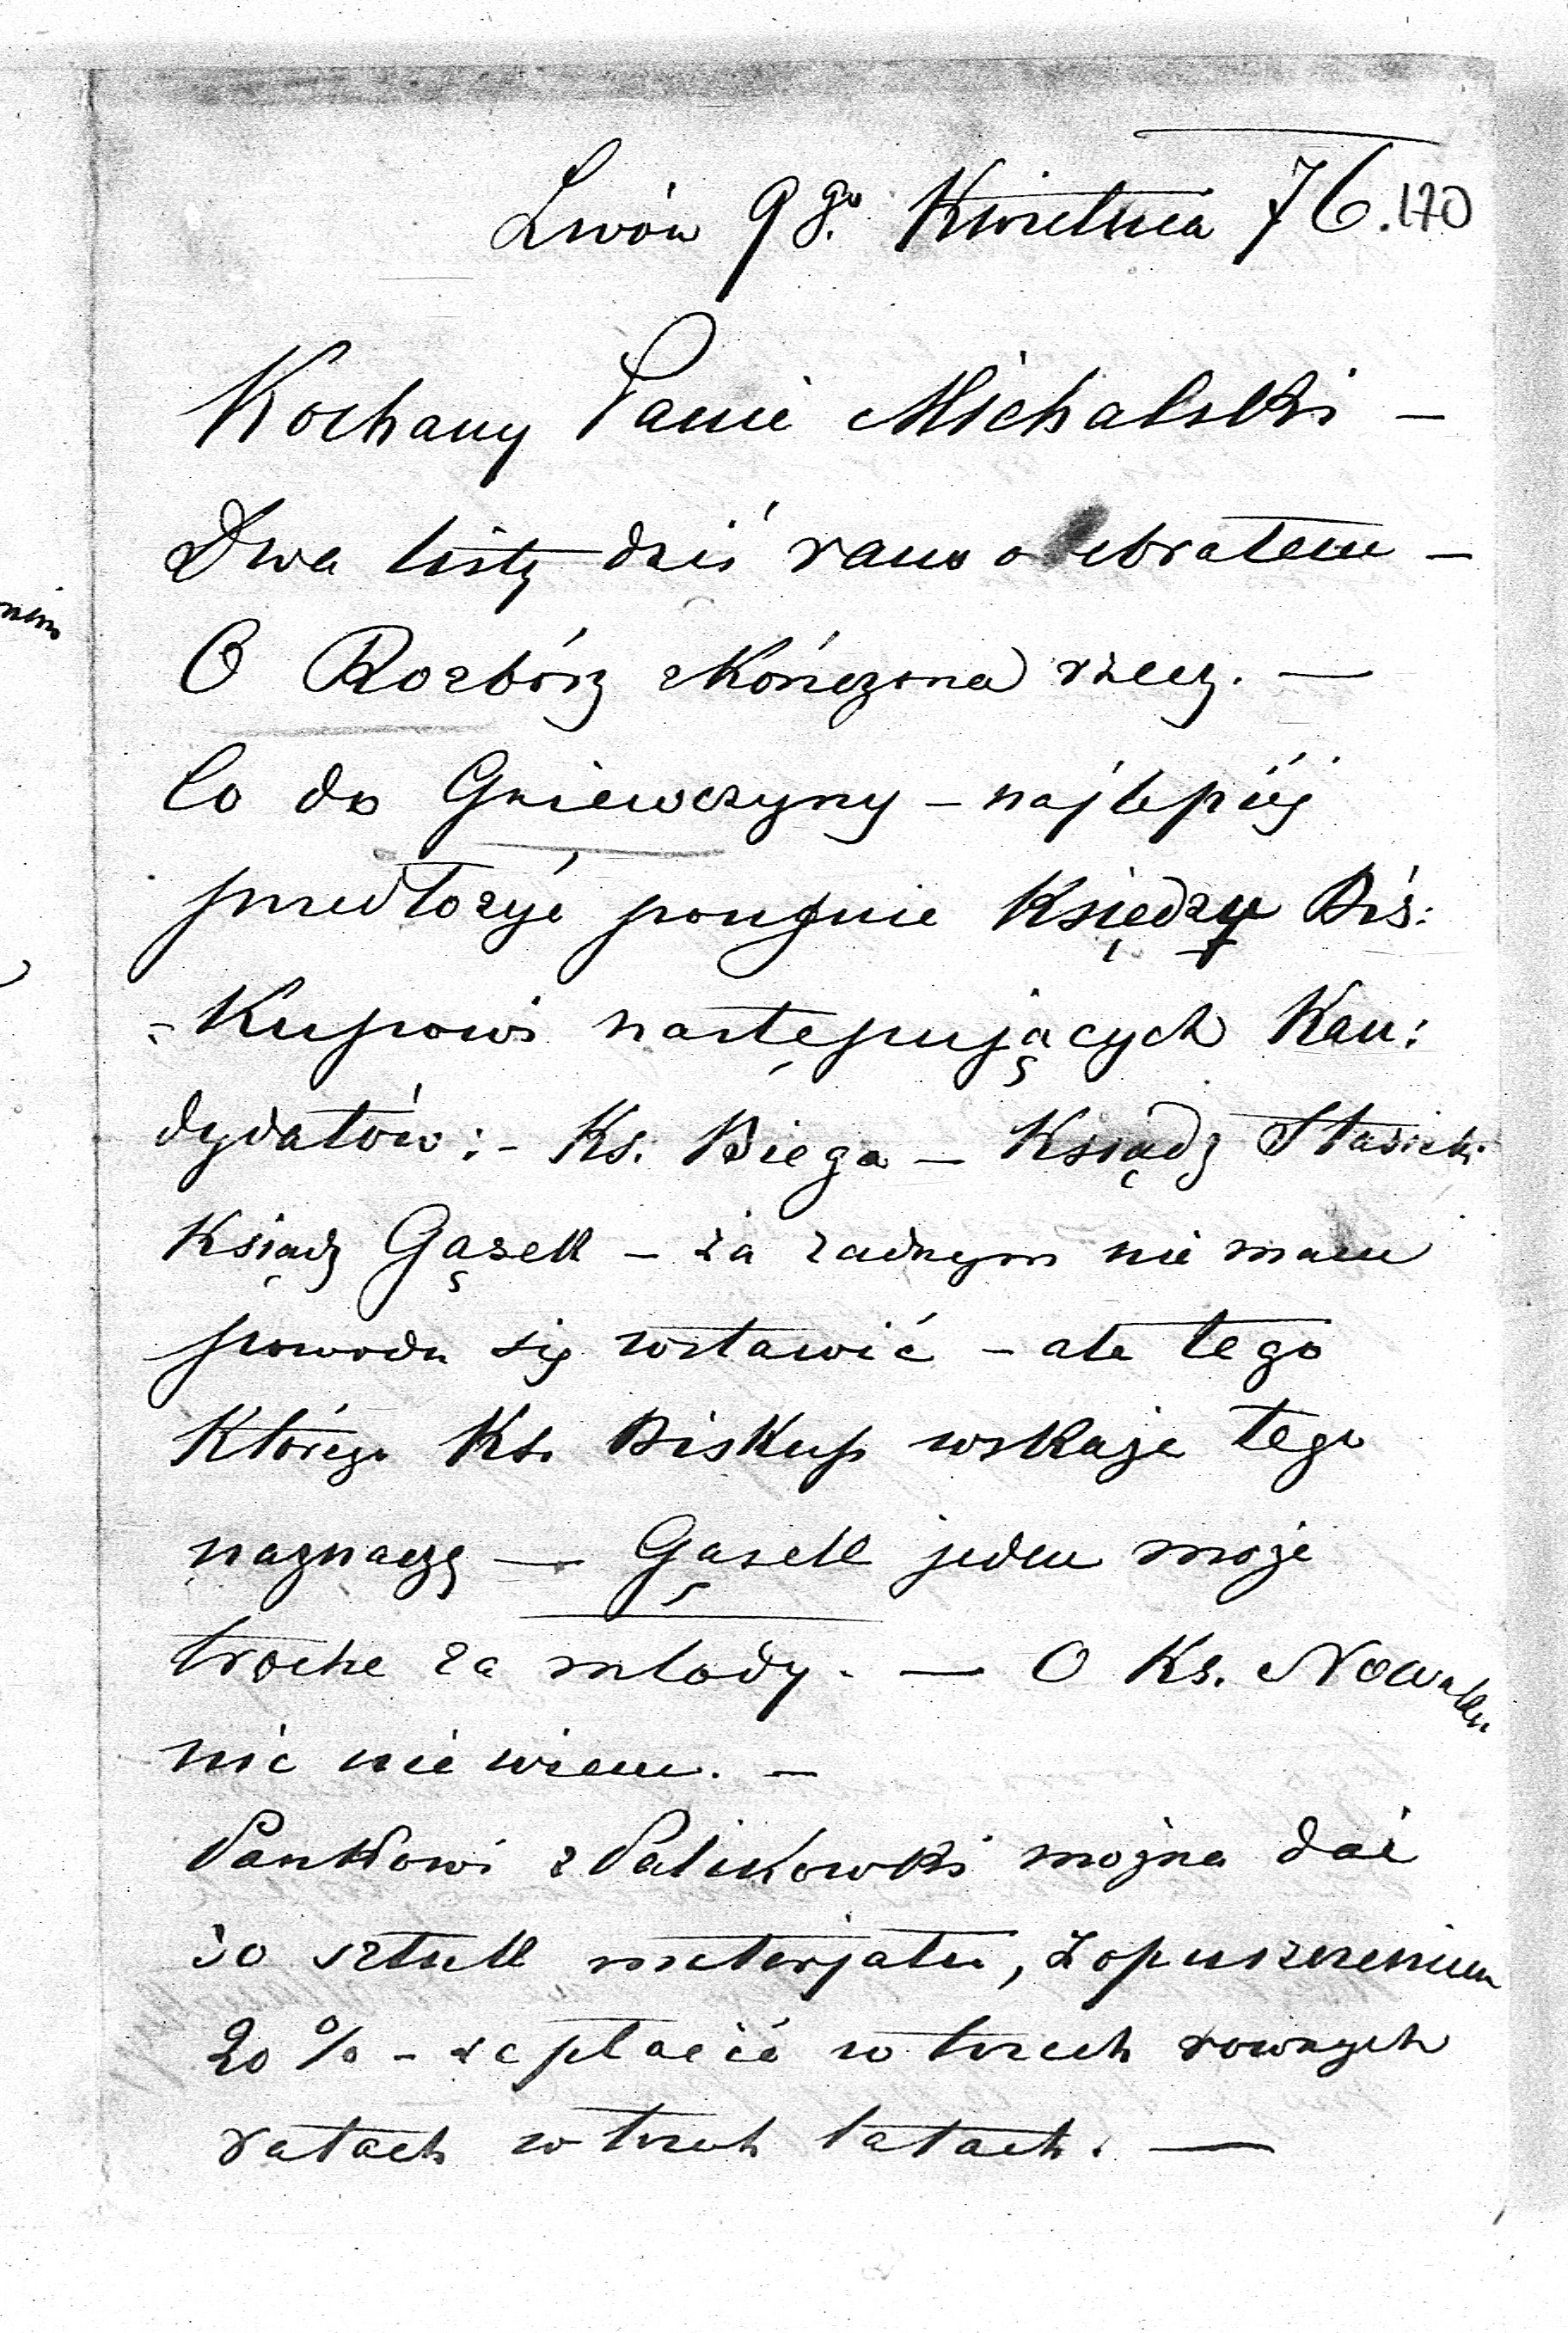 Lwów 9go. Kwietnia 76. 170
Kochany Panie Michalski —
Dwa listy dziś rano odebrałem —
O Rozbórz skończona rzecz. —
Co do Gniewczyny — najlepiéj
przedłożyć poufnie Księdzu Bis:
-kupowi następujących Kan:
dydatów: - Ks. Biega — Ksiądz Stasicki
Ksiądz Gąsell — za żadnym nie mam
powodu się wstawić — ale tego
którego Ks. Biskup wskaże tego
naznaczę — Gąsell jeden może
troche za młody. — O Ks. Nowaku
nic nie wiem. —
Pankowi z Palikowki można dać
30 sztuk materjału, z opuszczeniem
20 % - zapłacić w trzech rownych
ratach w trzech latach. —